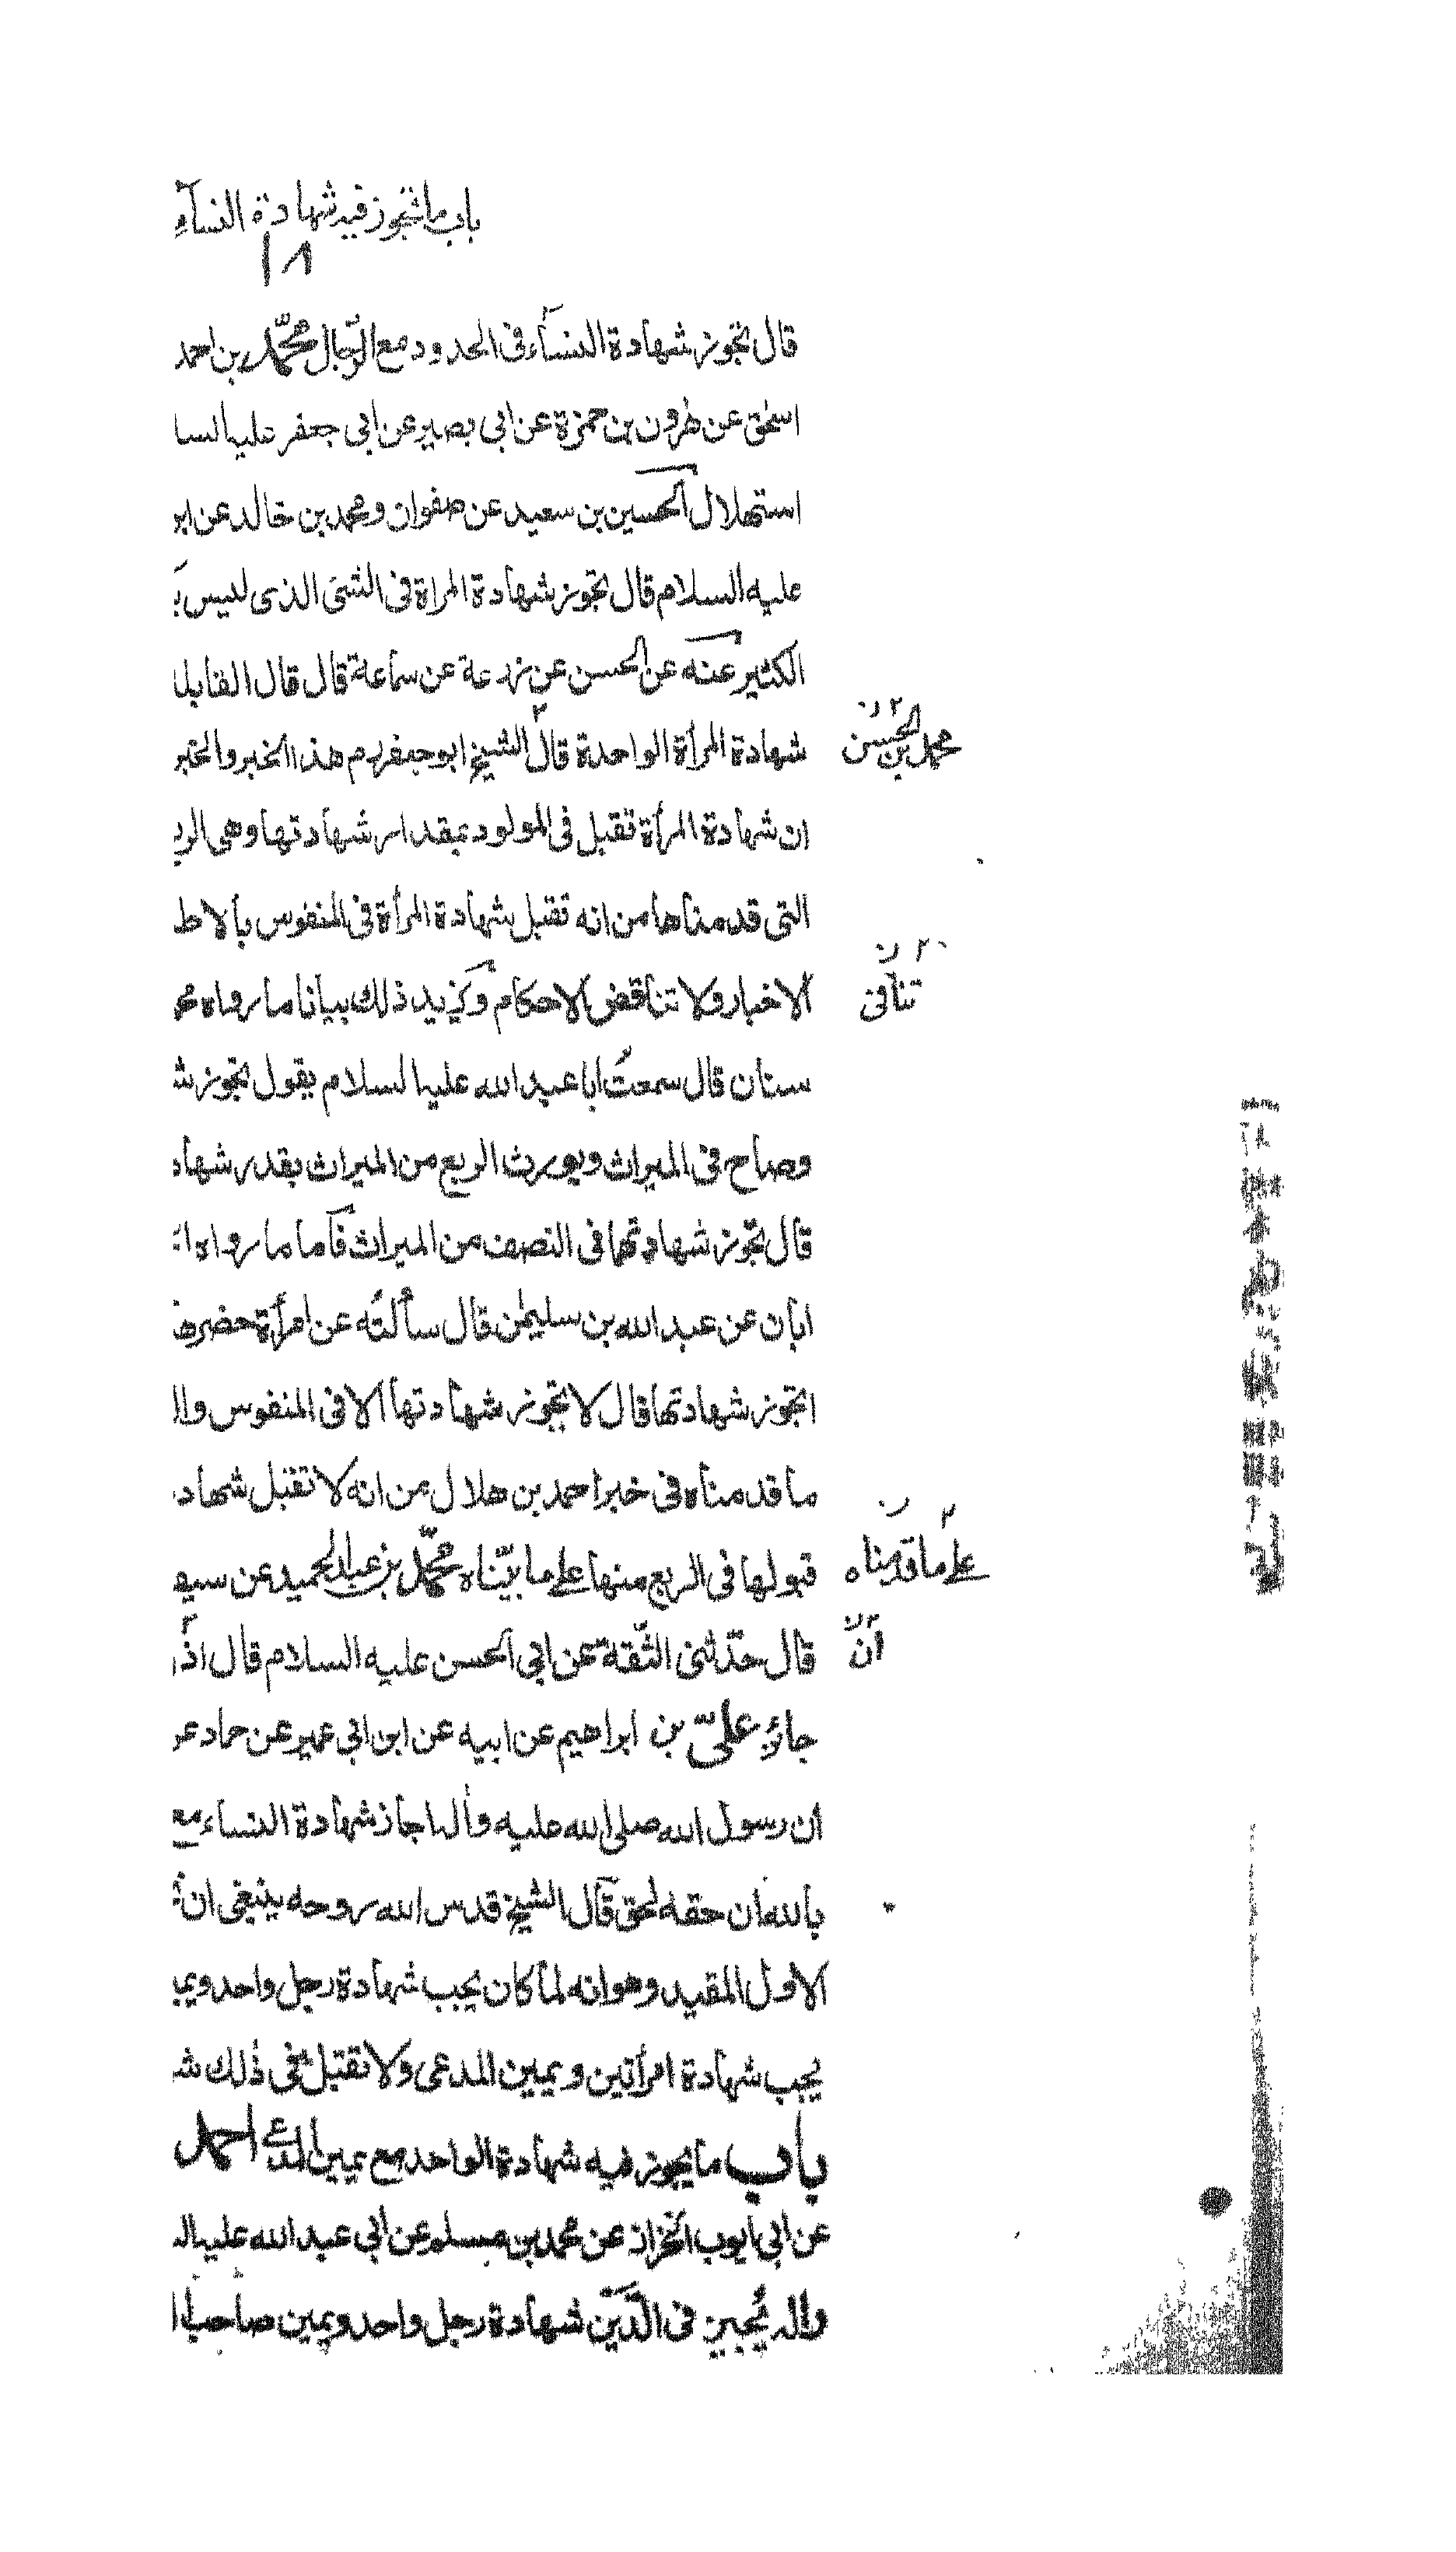 باب ما تجوز فيه شهادة النسآء
١٨
قال تجوز شهادة النسآء فى الحدود مع الرّجال محمّد بن احمد
اسحٰق عن هٰرون بن حمزة عن ابى بصير عن ابى جعفر عليه السا
استهلال الحسين بن سعيد عن صفوان ومحمد بن خالد عن ابر
عليه السلام قال تجوز شهادة المراة فى الشئ الذى ليس
الكثير عنه عن الحسن عن زرعة عن سماعة قال قال القابلا
شهادة المرأة الواحدة قال الشيخ ابو جعفر ره م هذا الخبر والخبر
محمد بن الحسن
ان شهادة المرأة تقبل فى المولود بمقدار شهادتها وهى الر
التى قدمناها من انه تقبل شهادة المرأة فى المنفوس بالاط
الاخبار ولا تناقض الاحكام وكزيد ذلك بيانا ما رواه مح
تنافى
سنان قال سمعت ابا عبد الله عليه السلام يقول تجوز ش
وصاح فى الميراث ويورث الربع من الميراث بقدر شهاد
قال تجوز شهادتها فى النصف من الميراث فاما ما رواه
ابان عن عبد الله بن سليمٰن قال سألته عن امرأة حضرها
اتجوز شهادتها قال لا تجوز شهادتها الا فى المنفوس وال
ما قدمناه فى خبر احمد بن هلال من انه لا تقبل شهاد
قبولها فى الربع منها على ما بيّناه محمّد بن عبد الحميد عن سيف
على ما قدمناه
قال حدّثنى الثّقة عن ابى الحسن عليه السلام قال اذ
أنّ
جائز علىّ بن ابراهيم عن ابيه عن ابن ابى عمير عن حماد عن
أن رسول الله صلى الله عليه وأله اجاز شهادة النساء مع
بالله ان حقه لحق قال الشيخ قدس الله روحه ينبغى ان
الاول المقيد وهو انه لما كان يجب شهادة رجل واحد ويم
يجب شهادة امرأتين ويمين المدعى ولا تقبل فى ذلك ش
باب ما يجوز فيه شهادة الواحد مع يمين المدعى احمد
عن ابى ايوب الخزاز عن محمد بن مسلم عن ابى عبد الله عليه ال
واله يُجيز فى الدّين شهادة رجل واحد ويمين صاحب ا